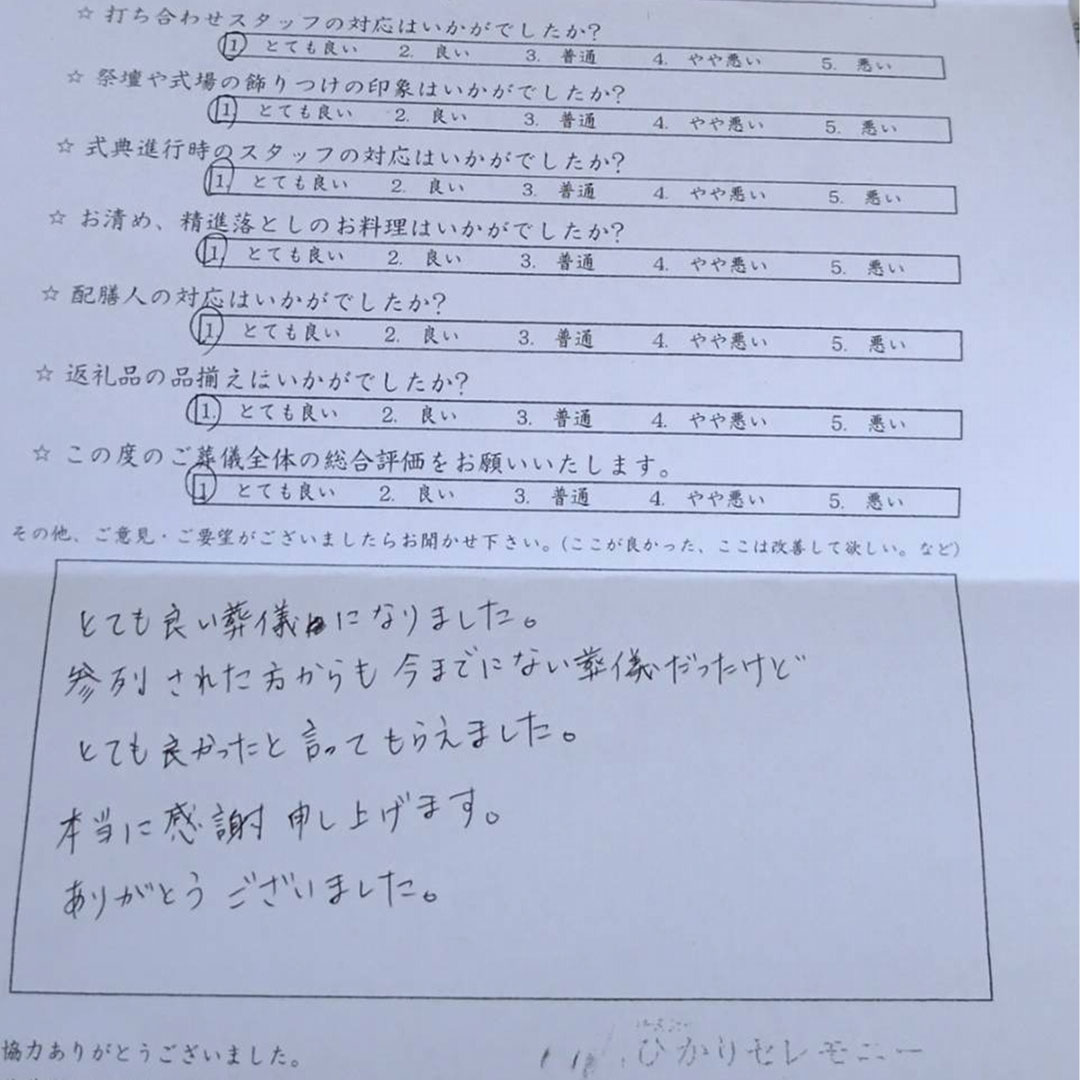 ☆ 打ち合わせスタッフの対応はいかがでしたか?
1 とても良い 2. 良い 3. 普通 4. やや悪い 5. 悪い
☆ 祭壇や式場の飾りつけの印象はいかがでしたか?
1 とても良い 2. 良い 3. 普通 4. やや悪い 5. 悪い
☆ 式典進行時のスタッフの対応はいかがでしたか?
1. とても良い 2. 良い 3. 普通 4. やや悪い 5. 悪い
☆ お清め、精進落としのお料理はいかがでしたか?
1 とても良い 2. 良い 3. 普通 4. やや悪い 5. 悪い
☆ 配膳人の対応はいかがでしたか?
1 とても良い 2. 良い 3. 普通 4. やや悪い 5. 悪い
☆ 返礼品の品揃えはいかがでしたか?
1. とても良い 2. 良い 3. 普通 4. やや悪い 5. 悪い
☆ この度のご葬儀全体の総合評価をお願いいたします。
1 とても良い 2. 良い 3. 普通 4. やや悪い 5. 悪い
その他、ご意見・ご要望がございましたらお聞かせ下さい。(ここが良かった、ここは改善して欲しい。など)
とても良い葬儀になりました。
参列された方からも今までにない葬儀だったけど
とても良かったと言ってもらえました。
本当に感謝申し上げます。
ありがとうございました。
協力ありがとうございました。
ひかりセレモニー